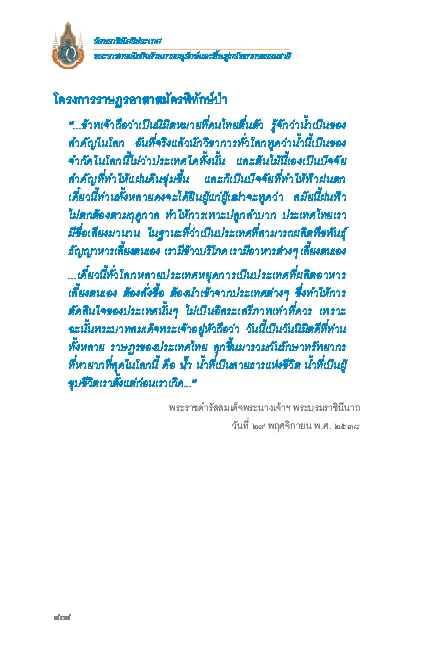 รักษาชีวันศรีประเทศ
พระราชกรณียกิจด้านการอนุรักษ์และฟื้นฟูทรัพยากรธรรมชาติ
โครงการราษฎรอาสาสมัครพิทักษ์ป่า
“...ข้าพเจ้าถือว่าเป็นนิมิตหมายที่คนไทยตื่นตัว รู้จักว่าน้ำเป็นของ
สำคัญในโลก อันที่จริงแล้วนักวิชาการทั่วโลกพูดว่าน้ำนี้เป็นของ
จำกัดในโลกนี้ไม่ว่าประเทศใดทั้งนั้น และต้นไม้นี้เองเป็นปัจจัย
สำคัญที่ทำให้แผ่นดินชุ่มชื้น และก็เป็นปัจจัยที่ทำให้ฟ้าฝนตก
เดี๋ยวนี้ท่านทั้งหลายคงจะได้ยินผู้แก่ผู้เฒ่าจะพูดว่า สมัยนี้ฝนฟ้า
ไม่ตกต้องตามฤดูกาล ทำให้การเพาะปลูกลำบาก ประเทศไทยเรา
มีชื่อเสียงมานาน ในฐานะที่ว่าเป็นประเทศที่สามารถผลิตพืชพันธุ์
ธัญญาหารเลี้ยงตนเอง เรามีข้าวบริโภค เรามีอาหารต่างๆ เลี้ยงตนเอง
...เดี๋ยวนี้ทั่วโลกหลายประเทศหยุดการเป็นประเทศที่ผลิตอาหาร
เลี้ยงตนเอง ต้องสั่งซื้อ ต้องนำเข้าจากประเทศต่างๆ ซึ่งทำให้การ
ตัดสินใจของประเทศนั้นๆ ไม่เป็นอิสระเสรีภาพเท่าที่ควร เพราะ
ฉะนั้นพระบาทสมเด็จพระเจ้าอยู่หัวถือว่า วันนี้เป็นวันนิมิตดีที่ท่าน
ทั้งหลาย ราษฎรของประเทศไทย ลุกขึ้นมารวมกันรักษาทรัพยากร
ที่หายากที่สุดในโลกนี้ คือ น้ำ น้ำที่เป็นสายธารแห่งชีวิต น้ำที่เป็นผู้
ชุบชีวิตเราตั้งแต่ก่อนเราเกิด...”
พระราชดำรัสสมเด็จพระนางเจ้าฯ พระบรมราชินีนาถ
วันที่ ๒๙ พฤศจิกายน พ.ศ. ๒๕๓๘